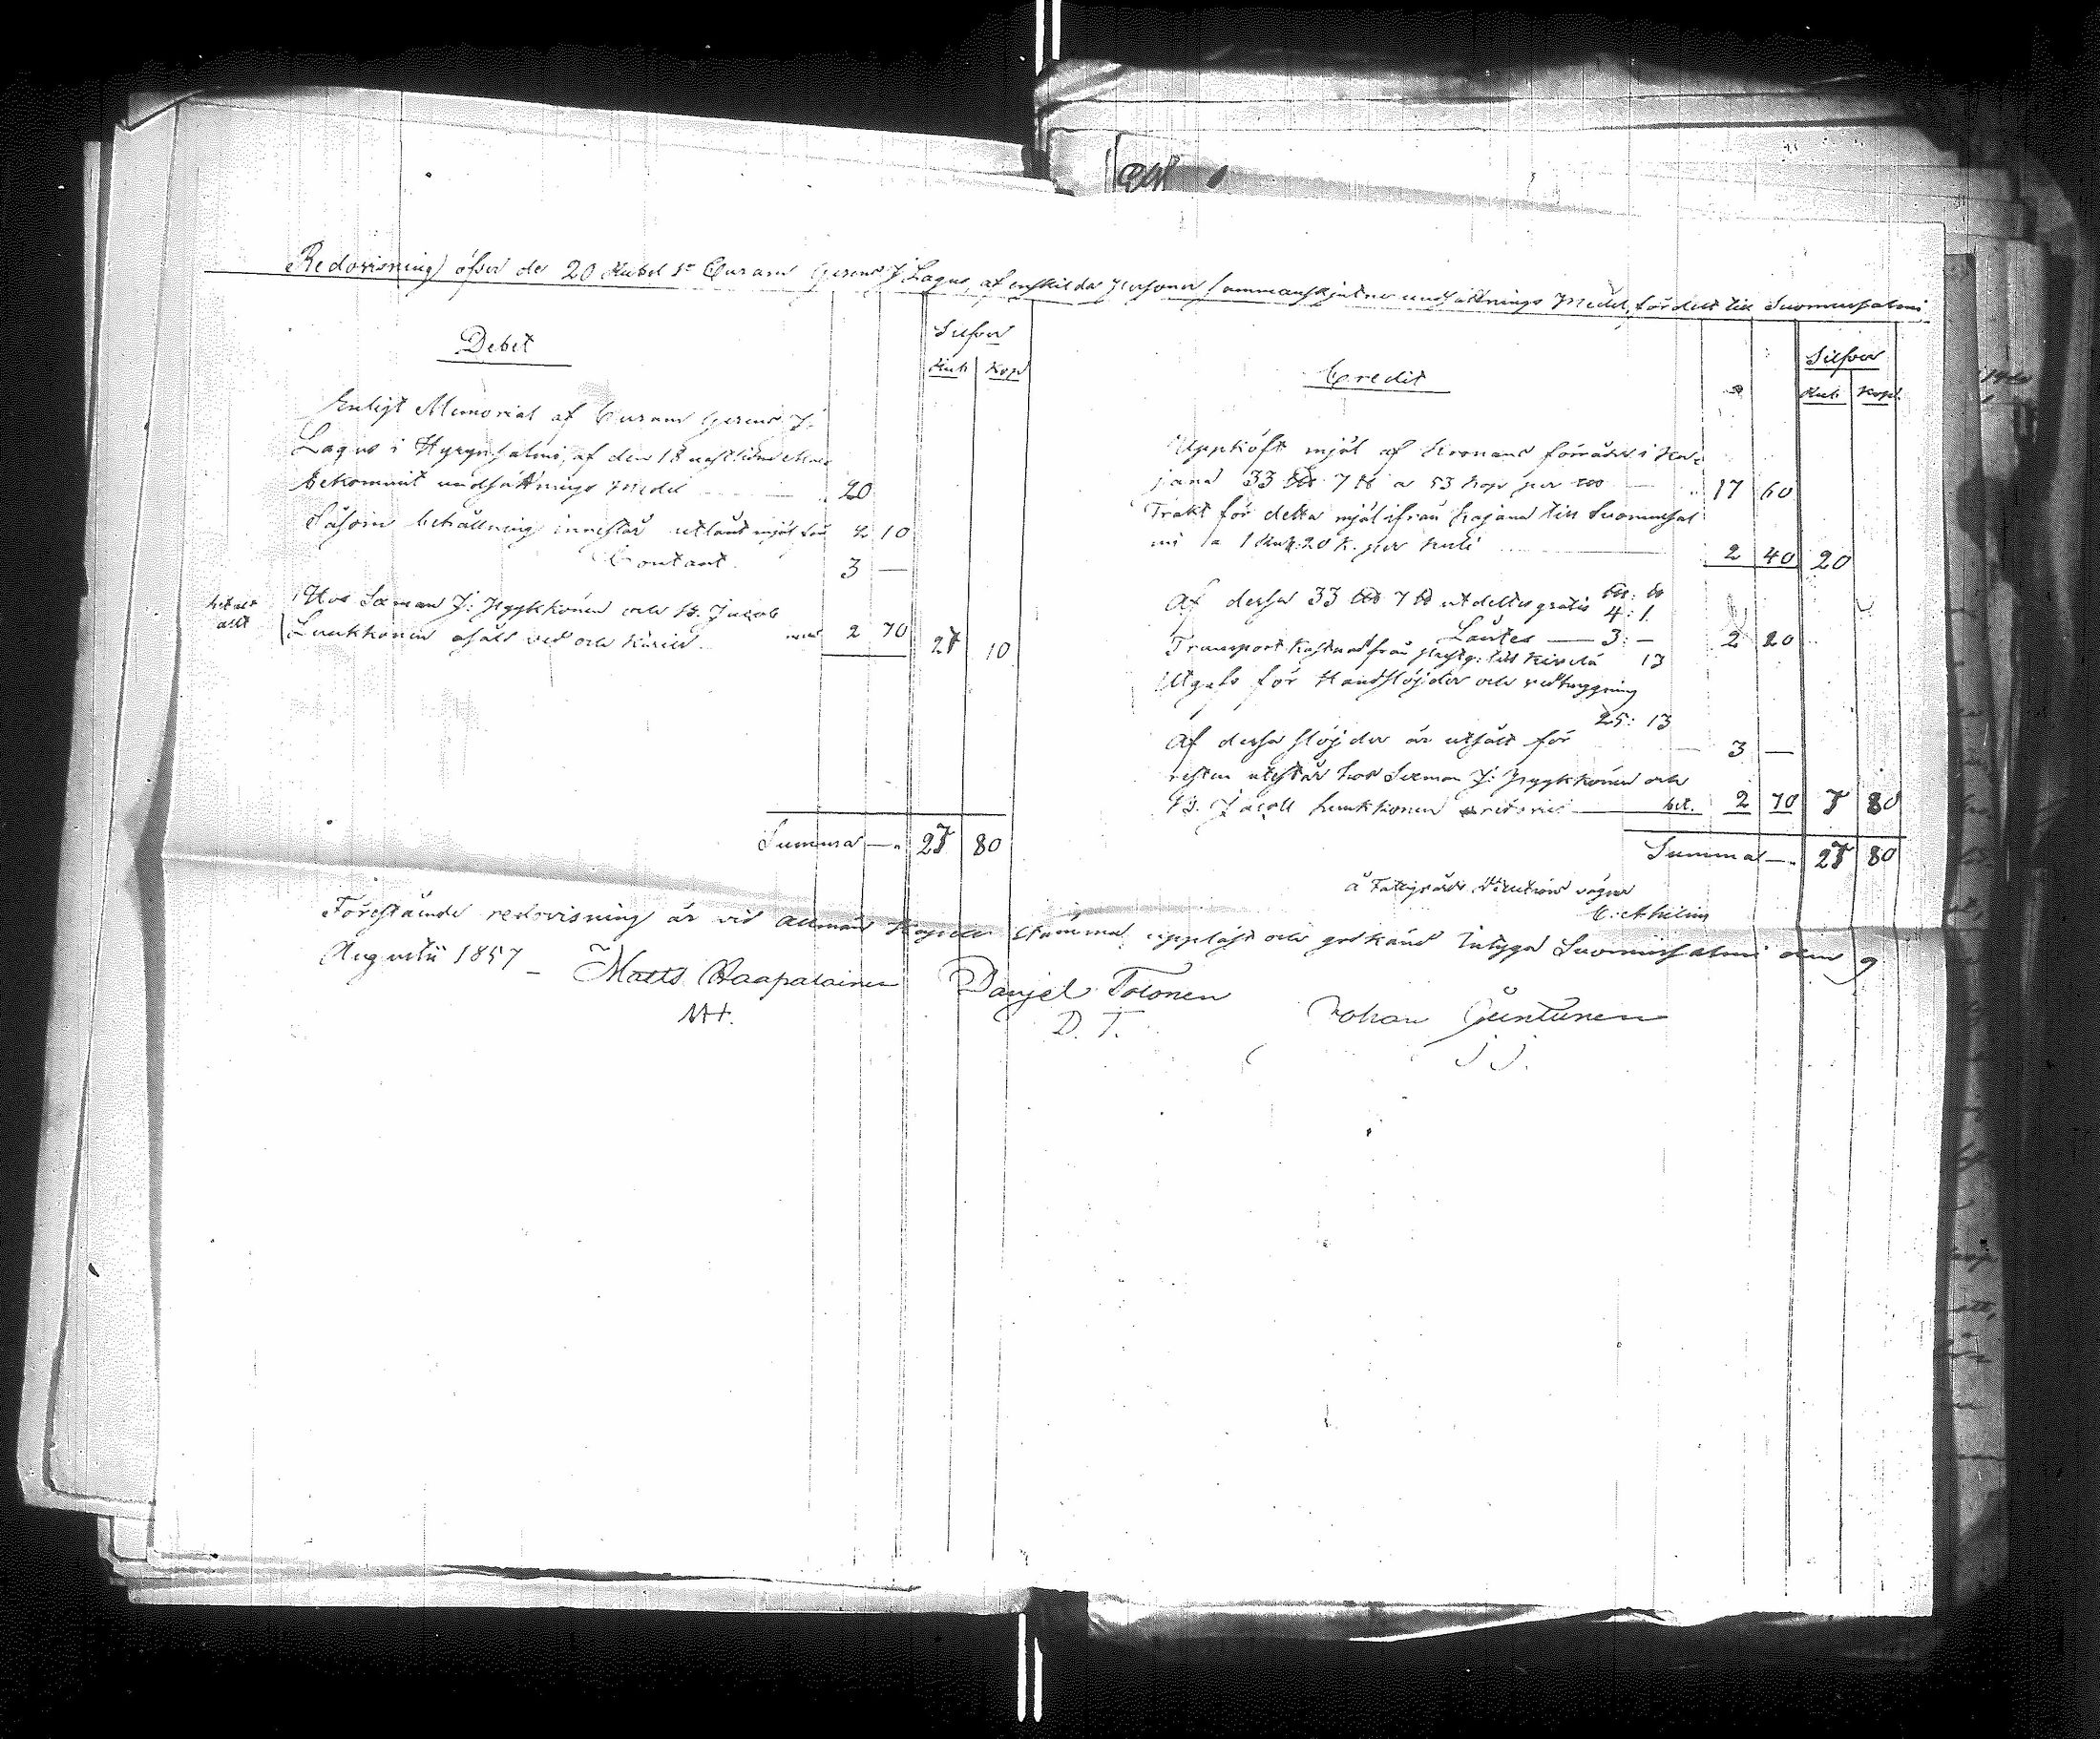 Redovisning öfver de 20 Rubel Sr Curam Gerens J Lagus, af enskilda personer sammanskjutne undsättnings Medel, för delt till Suomussalmi
Debet
Silfver
Rub Kop
Enligt Memorial af Curam Gerens J.
Lagus i Hyrynsalmi, af den 18
bekommit undsättnings Medel 20
Såsom behållning innestår utlånt mjöl för 2 10
Contant 3 —
Hos Sexman J: Pyykkönen och Bd. Jacob
Luukkonen osålt 2 70 27 10
Summa — 27 80
Credit
Silfver
Rub. Kop.
Uppköpt mjöl af Kronans förråder i Ka-
jana 33 7 ℔ a 53 Kop per 17 60
Frakt för detta mjöl ifrån Kajana till Suomussal
mi a 1 Rub. 20 K. per Kuli 2 40 20
Af dessa 33 7 ℔ utdeltes gratis 4: 1
Lantes — 3: — 2 20
Transport kostnad från till 13
Utgifs för Handslöjder och
25: 13
Af dessa slöjder är utsålt för 3 —
resten utestår hos Sexman J: Pyykkönen och
Bd. Jacob Luukkonen 2 70 7 80
Summa — 27 80
å Fattigvårds Direktions vägnar
Förestående redovisning är vid allmän Stämma uppläst och godkänd Intygar Suomussalmi den 9
Augustii 1857 — Matts Haapalainen Danjel Tolonen Johan Juntunen
MH. D. T. J J.